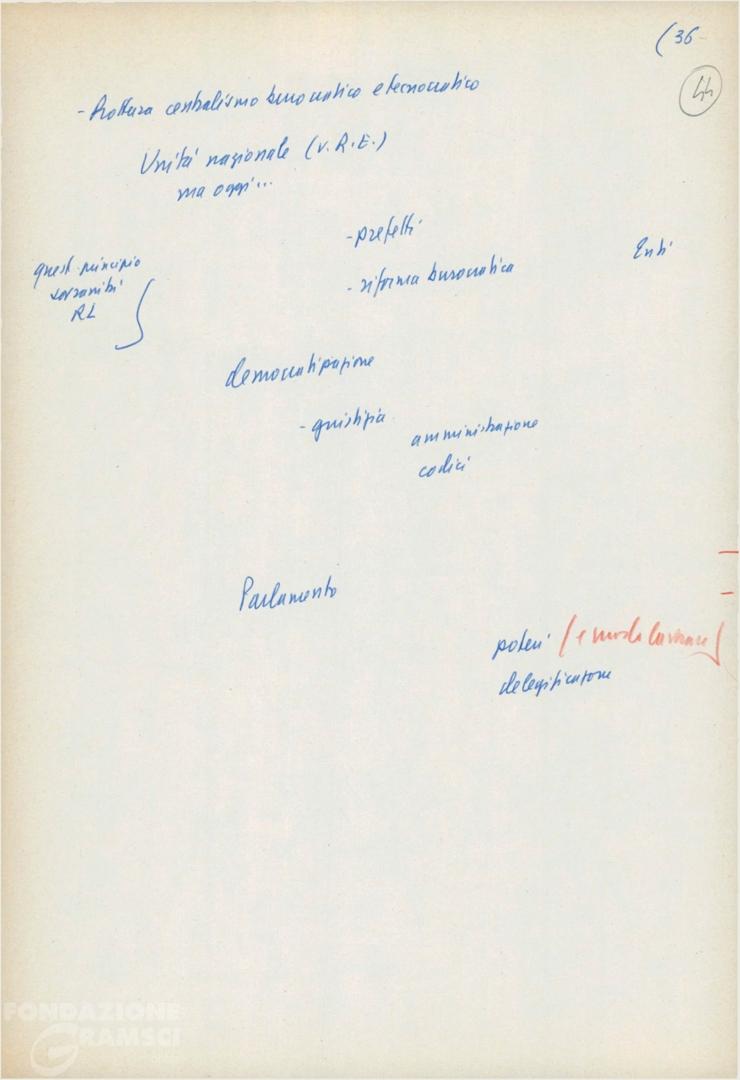 (36-
44
- Rottura centralismo burocratico e tecnocratico
Unità nazionale (v. R.E.)
ma oggi...
- prefetti
Enti
quest. principio
sovranità
RL
- riforma burocratica
democratizzazione
- giustizia
amministrazione
codici
Parlamento
poteri (e modi lavorare)
delegificazione
FONDAZIONE
GRAMSCI